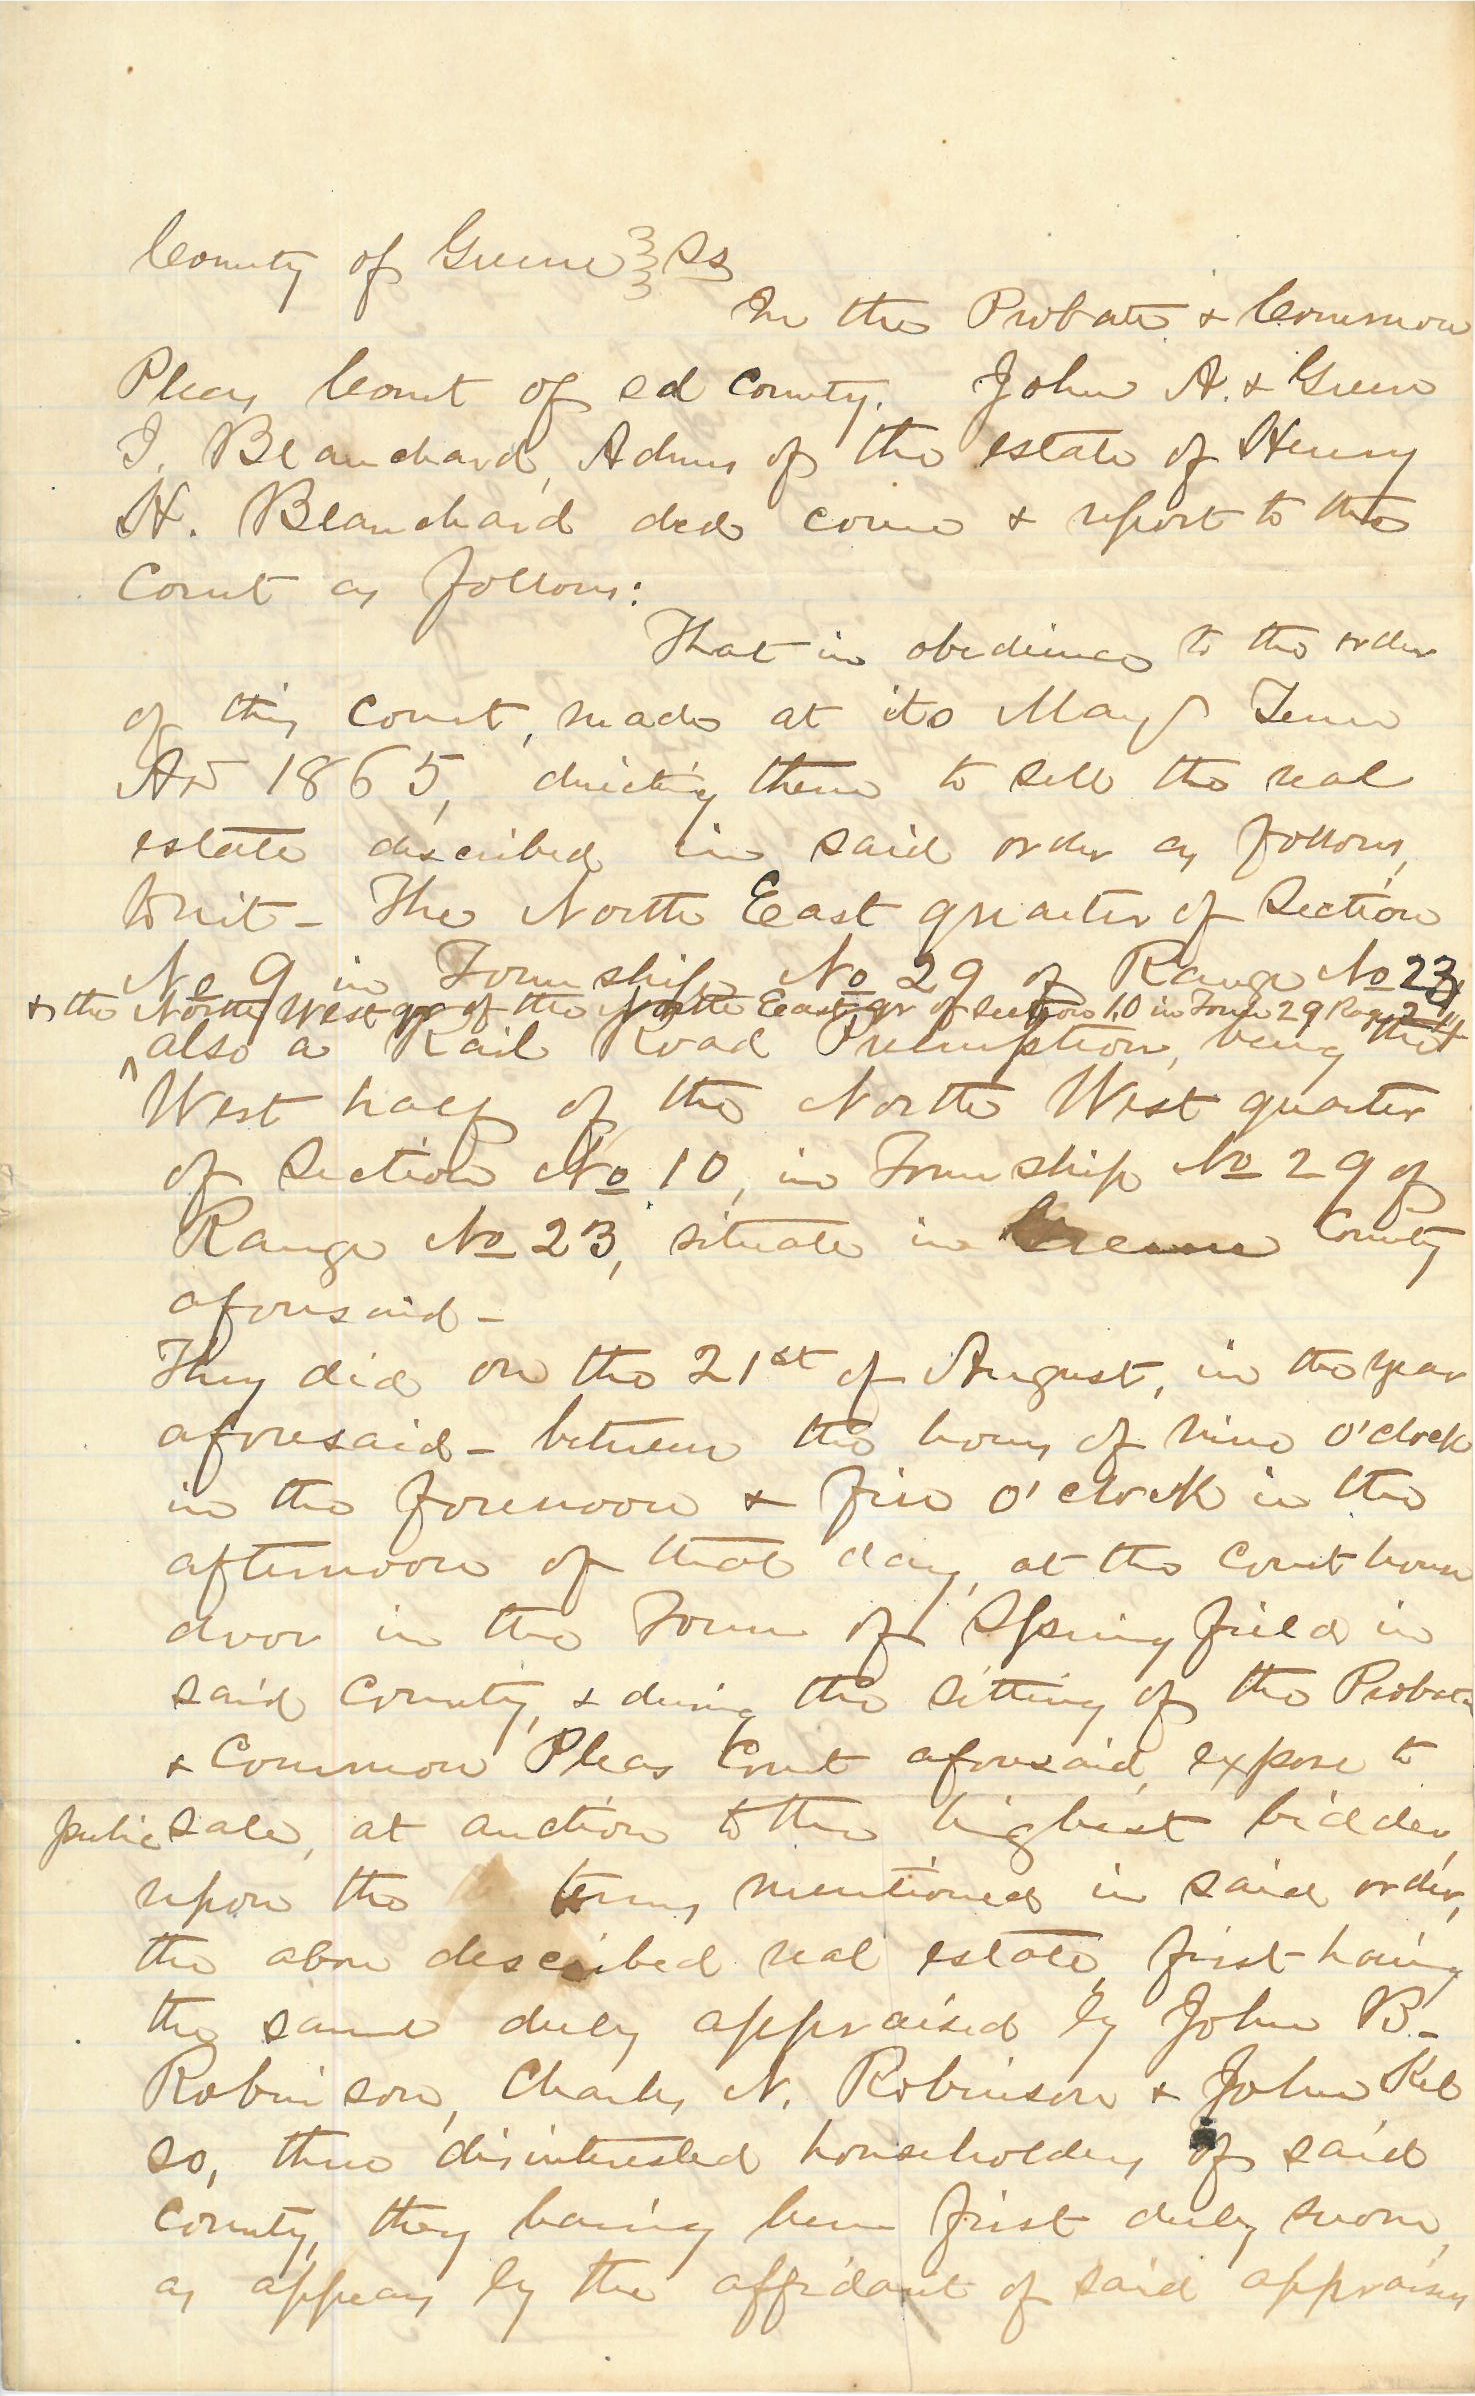 County of Greene } Ss
In the Probate & Common
Pleas Court of sd County. John A. & Green
I. Blanchard, Admrs of the estate of Henry
H. Blanchard ded come & report to the
Court as follows:
That in obedience to the order
of this Court, made at its May Term
AD 1865, directing them to sell the real
estate described in said order as follows,
towit - The North East quarter of Section
No 9 in Township No 29 of Range No
& the North West qr of the North East qr of section 10 in Town 29 Rag 24
also a Rail Road Preemption, being the
West half of the North West quarter
of Section No 10, in Township No 29 of
Range No 23, situate in Greene County
aforesaid -
They did on the 21st of August, in the year
aforesaid - between the hours of nine o'clock
in the forenoon & five o'clock in the
afternoon of that day, at the Court house
door in the Town of Springfield in
said County, & during the sitting of the Probate
& Common Pleas Court aforesaid, expose to
public sale, at auction to the highest bidder,
upon the terms mentioned in said order,
the above described real estate, first having
the same duly appraised by John B.
Robinson, Charles N. Robinson & John Kel
so, three disinterested householders of said
County, they having been first duly sworn,
as appears by the affidavit of said appraisers